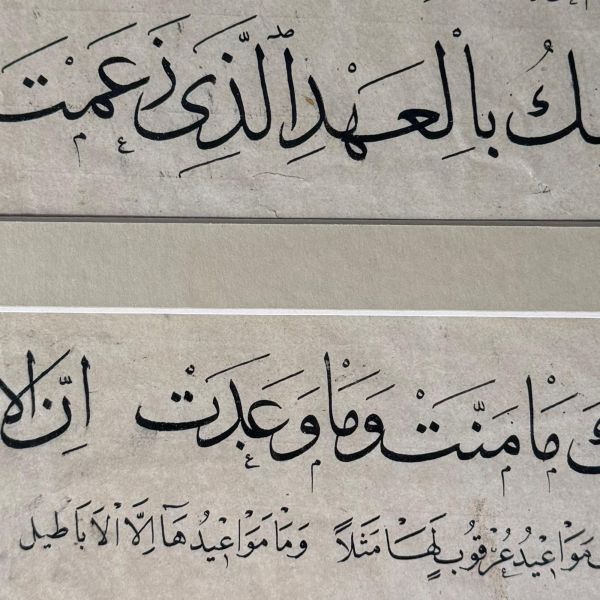 بِالْعَهْدِ الَّذِي زَعَمَتْ
مَا مَنَّتْ وَمَا وَعَدَتْ اِنَّ
مَوَاعِيدُ عُرْقُوبٍ لَهَا مَثَلاً وَمَا مَوَاعِيدُهَآ اِلَّا الْاَبَاطِيل